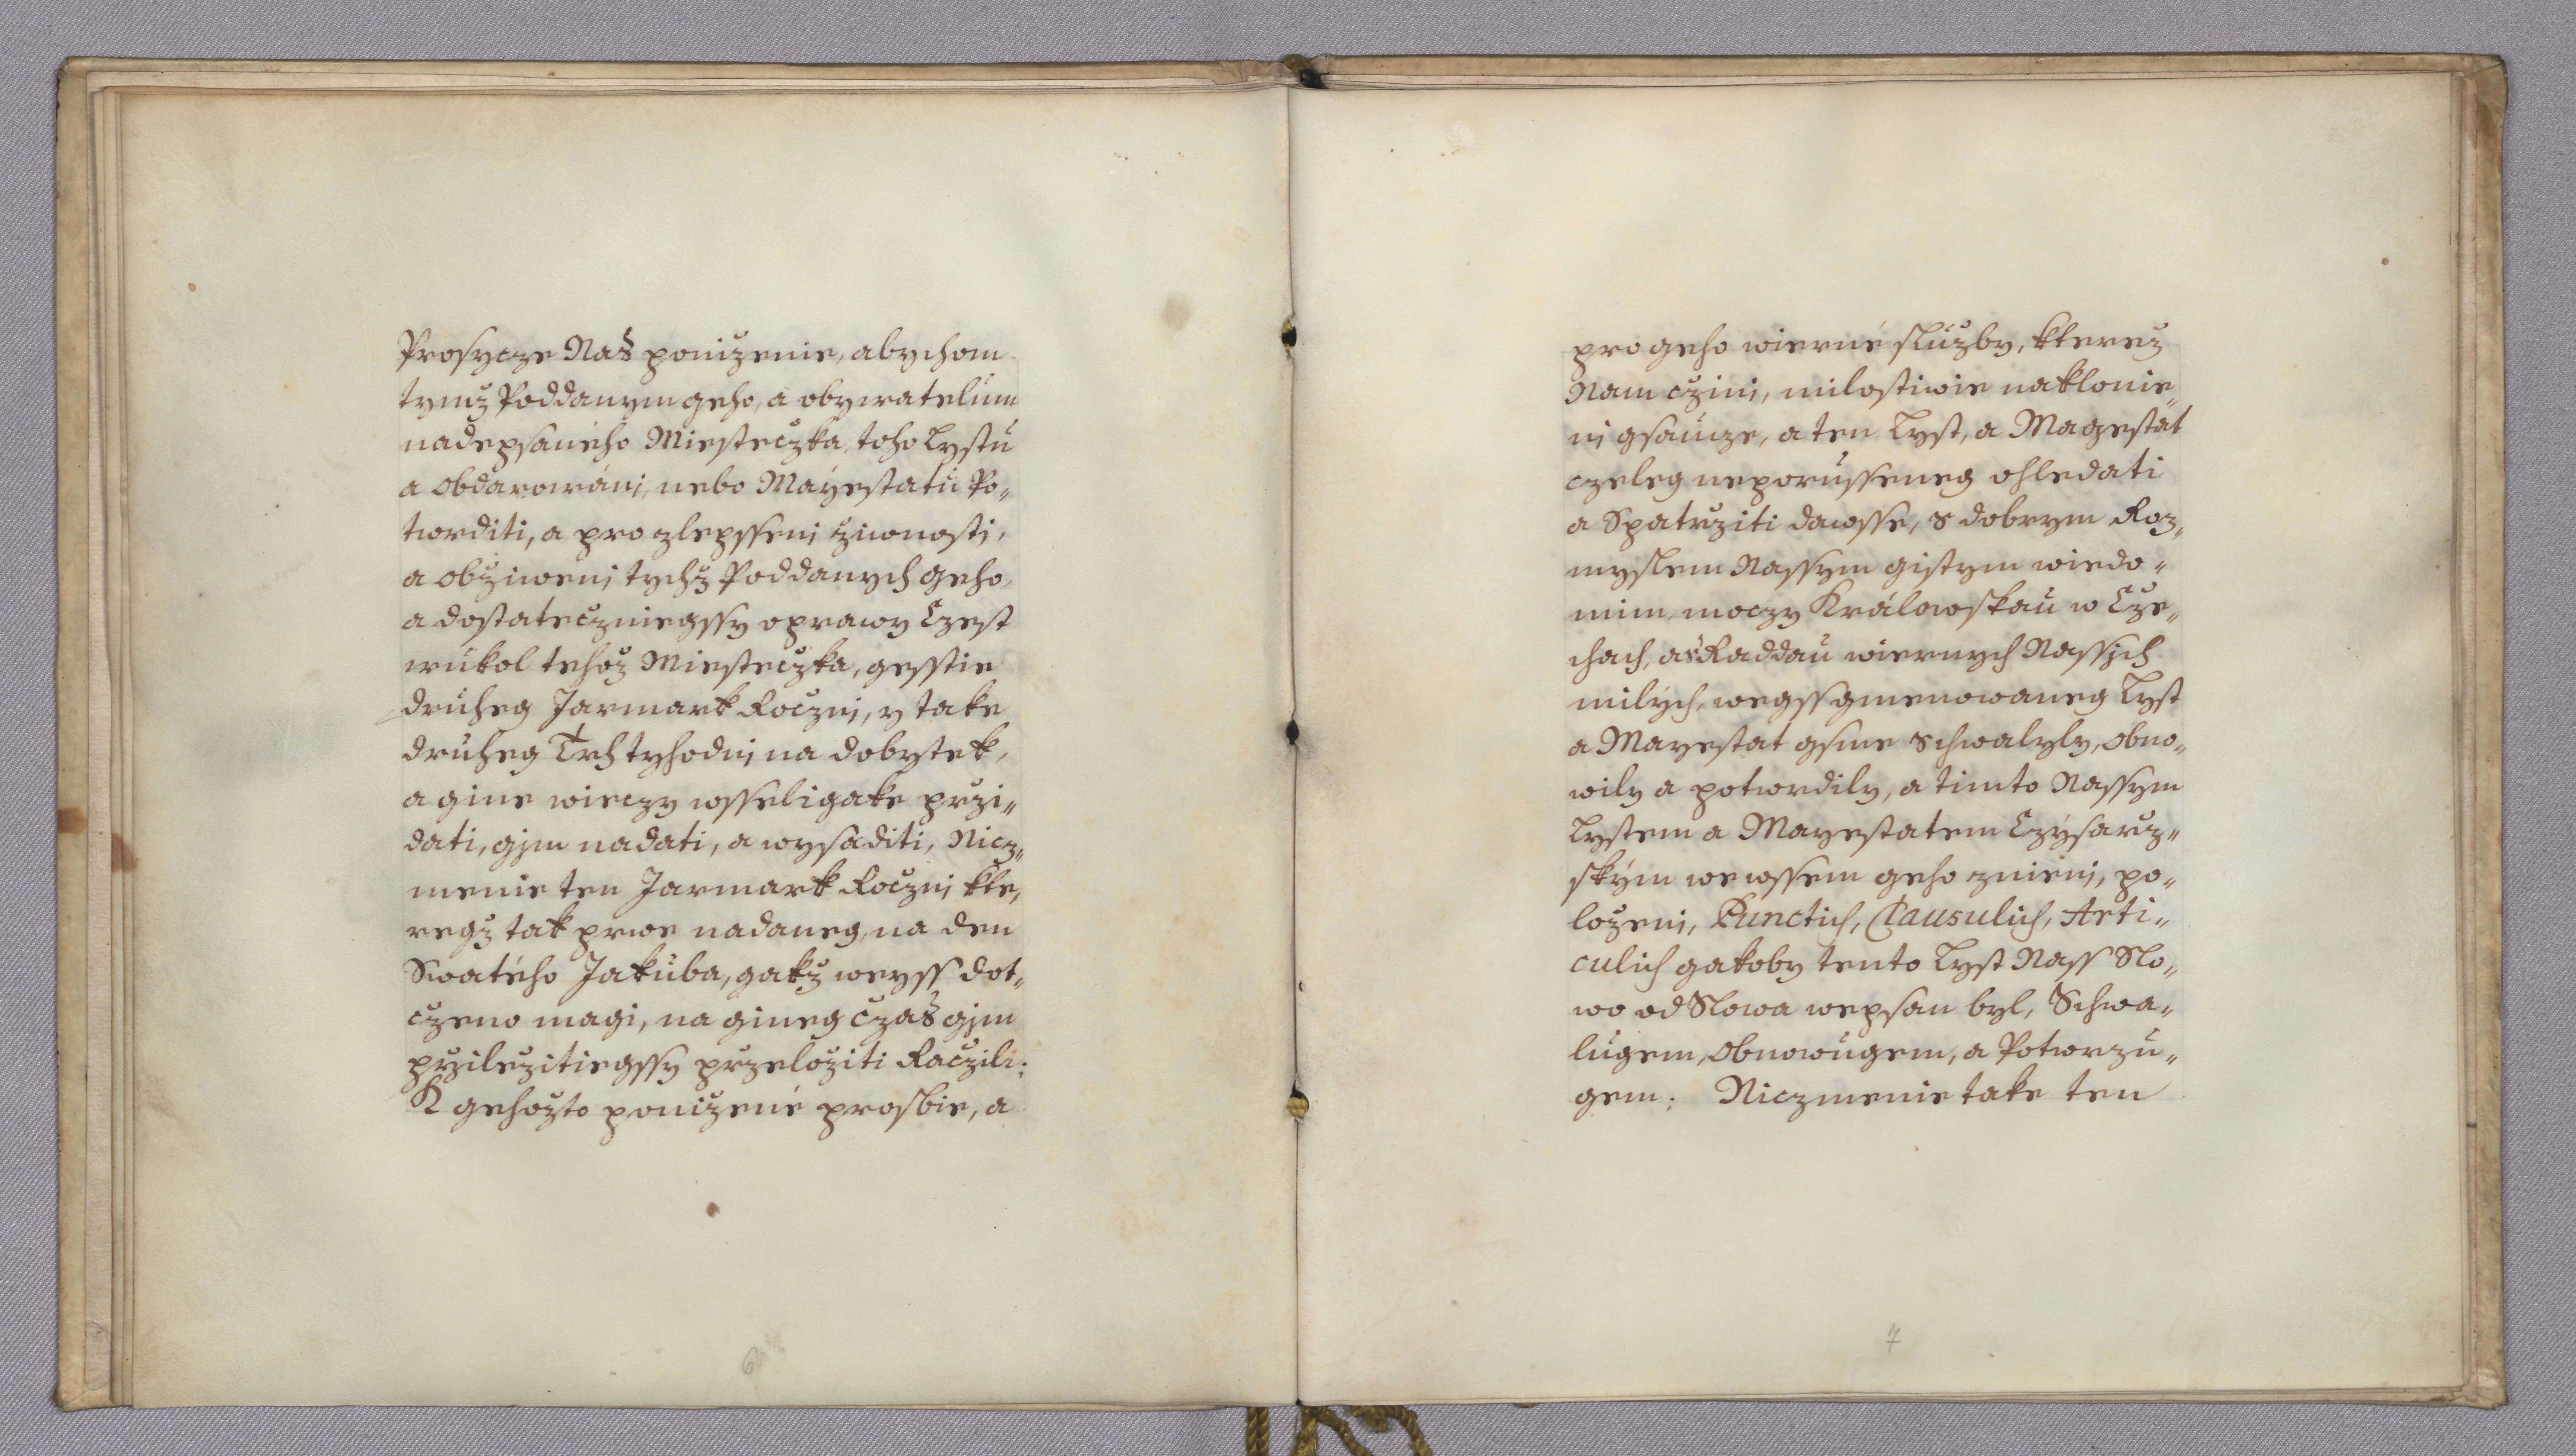 Prosycze Nas ponižienie, abychom
tymž Poddanym geho, a obywatelum
nadepsaného Miestecžka, toho Lystu
a Obdarowáni, nebo Mayestatu Po„
twrditi, a pro zlepsseni žiwnosti,
a obžiweni tychž Poddanych geho,
a dostatecžniegssy oprawy Czest
wukol tehož Miestecžka, gesstie
druheg Jarmark Rocžni, y take
druheg Trh tyhodni na dobytek,
a gine wieczy wsseligake przi„
dati, gim nadati, a wysaditi, Nicz„
menie ten Jarmark Rocžni kte„
regž tak prwe nadaneg, na den
Swatého Jakuba, gakž weyss dot„
cženo magi, na gineg cžas gim
prziležitiegssy przeložiti Racžili:
K gehožto poniženė prosbie, a
6
pro geho wierné služby, kterež
Nam cžini, milostiwie naklonie„
ni gsaucze, a ten Lyst, a Magestat
czeleg neporusseneg ohledati
a Spatrziti dawsse, s dobrym Roz„
myslem Nassym gistym wiedo„
mim, moczy Králowskau w Cze„
chach, a s Raddau wiernych Nassich
milých, wegssgmenowaneg Lyst
a Mayestat gsme schwalyly, Obno„
wily a potwrdily, a timto Nassym
Lystem a Mayestatem Czysarz„
ským we wssem geho znieni, po„
loženi, Punctich, Clausulich, Arti„
culich gakoby tento Lyst Nass Slo„
wo od Slowa wepsan byl, Schwa„
lugem, Obnowugem, a Potwrzu„
gem: Niczmenie take ten
7